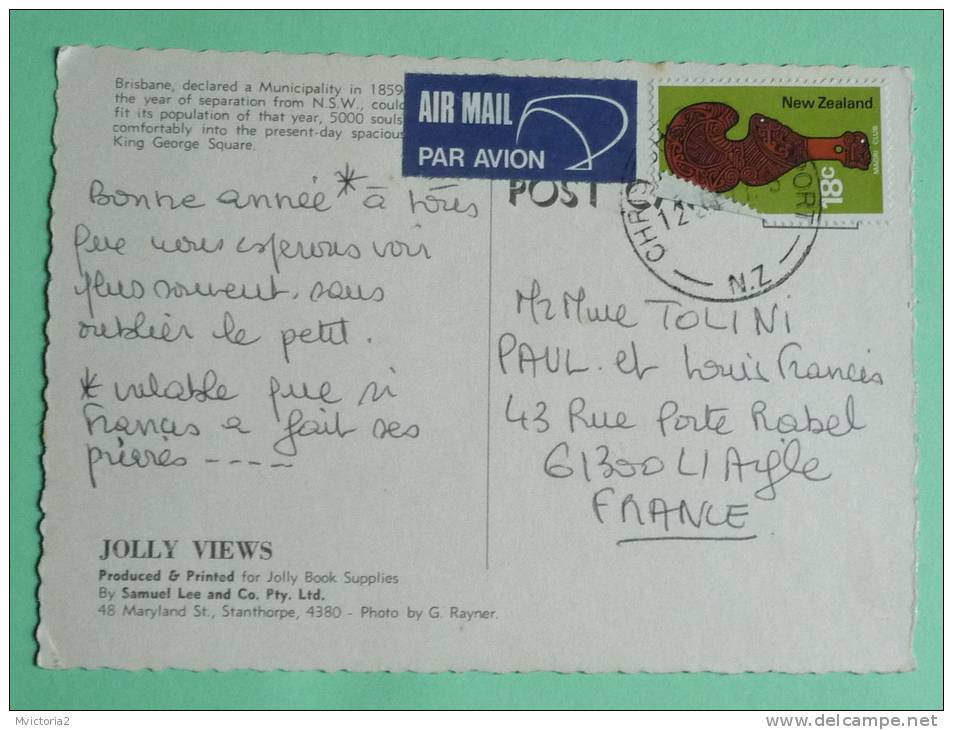 Brisbane, declared a Municipality in 1859
the year of separation from N.S.W., could
fit its population of that year, 5000 souls
comfortably into the present-day spacious
King George Square.
AIR MAIL
PAR AVION
New Zealand
MAORI CLUB
18c
POST
N.Z
12
Bonne année * à tous
que nous esperons voir
plus souvent. sans
oublier le petit.
* valable que si
Francis a fait ses
prières ----
Mr Mme TOLINI
PAUL. et Louis Francis
43 Rue Porte Rabel
61300 L'Aigle
FRANCE
JOLLY VIEWS
Produced & Printed for Jolly Book Supplies
By Samuel Lee and Co. Pty. Ltd.
48 Maryland St., Stanthorpe, 4380 - Photo by G. Rayner.
Mvictoria2
www.delcampe.net